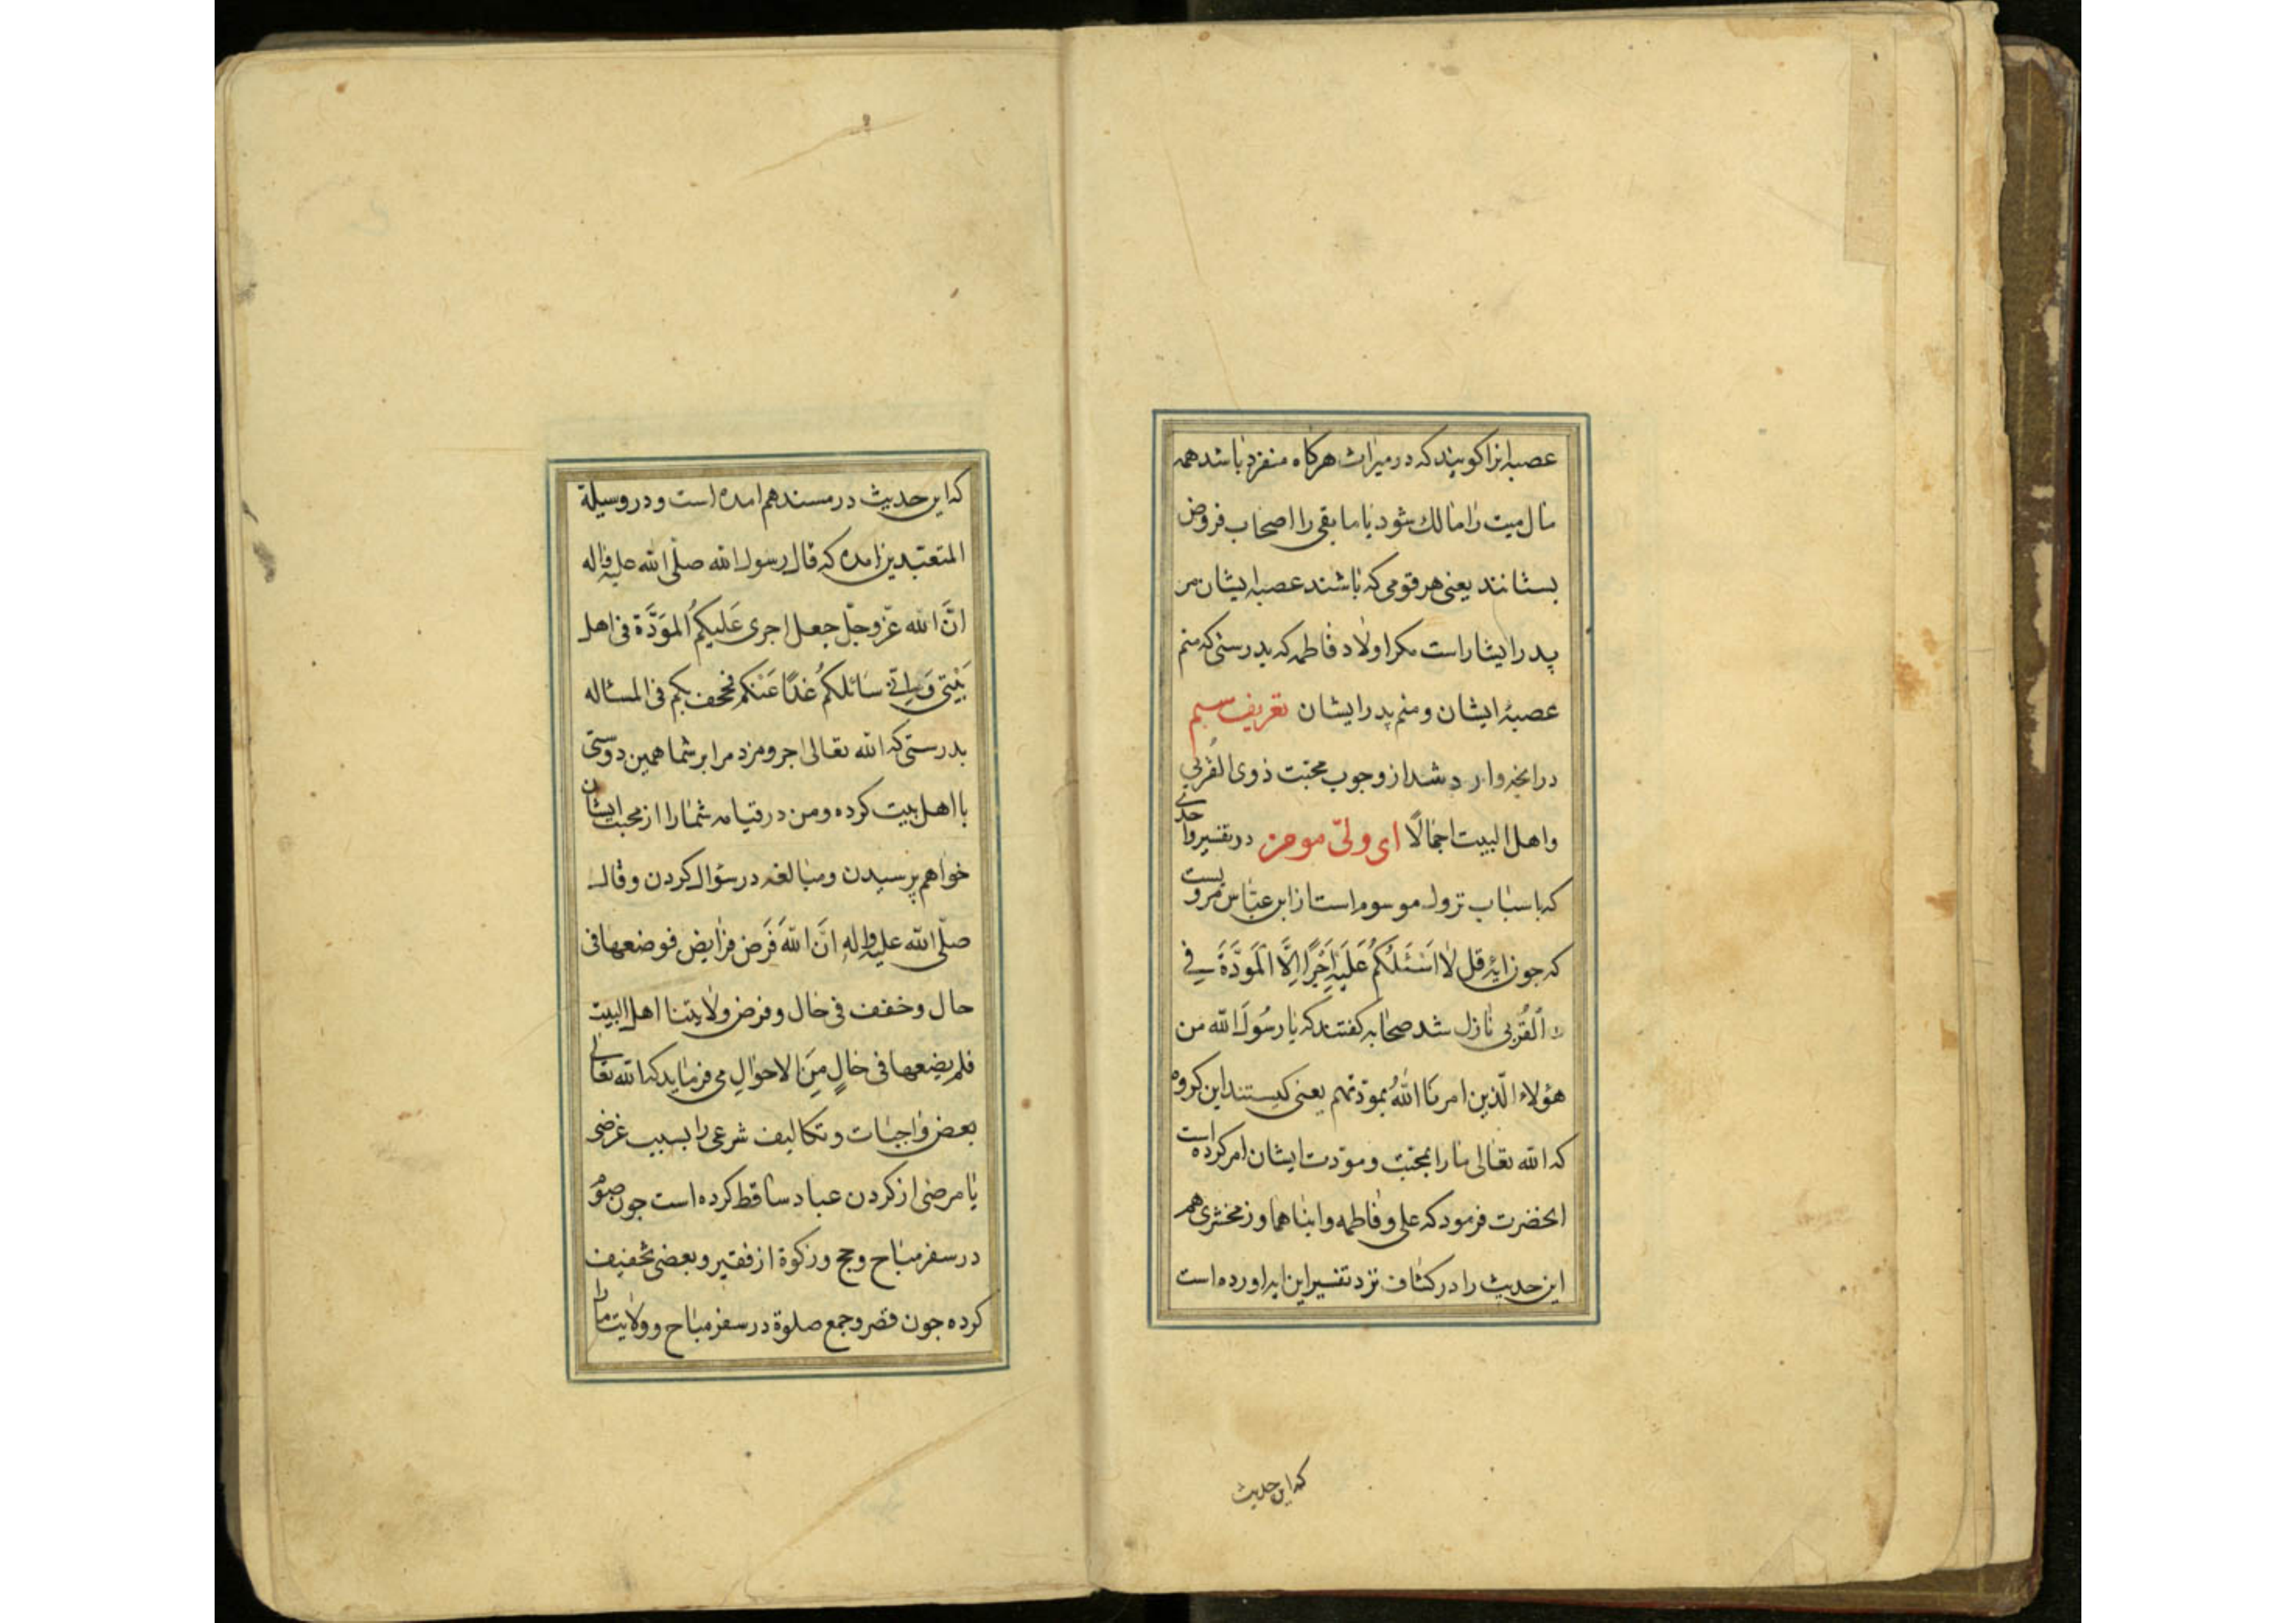 عصبه انرا كویند كه در میراث هركاه منفرد باشد همه
مال میت را مالك شود یا ما بقی را اصحاب فروض
بستانند یعنی هر قومی كه باشند عصبه ایشان مر
پدر ایشا راست مكر اولاد فاطمه كه بدرستی كه منم
عصبۀ ایشان و منم پدر ایشان تعریف سیم
در انچه وارد شد از وجوب محبّت ذوی القُربٰی
واهل البیت اجمالًا ای ولیّ موحن در تفسیر واحدی
كه باسباب نزول موسوم است از ابن عبّاس مرویست
كه جون ایۀ قل لا اَسْئَلُكُمْ عَلَیْهِ اَجْرًا اِلَّا الْمَوَدَّةَ فِی
الْقُرْبٰی نازل شد صحابه كفتند كه یا رسُولَ الله من
هؤلاء الّذین امرنا اللهُ بمودّتهم یعنی كیستند این كروه
كه الله تعالی ما را بمحبّت و مودّت ایشان امر كرده است
انحضرت فرمود كه علی و فاطمه و ابناهما و زمخشری هم
این حدیث را در كشاف نزد تفسیر این ایه اورده است
كه این حدیث
كه این حدیث در مسند هم امده است و در وسیلة
المتعبّدین امده كه قال رسول الله صلّی الله علیه واله
انَّ الله عزّ وجلّ جعل اجری عَلَیكُم المَوَدَّة فی اهل
بَیْتی وَ اِنّی سَائلكُم غدًا عَنْكم فمحف بكم فی المساله
بدرستی كه الله تعالی اجر و مزد مرا بر شما همین دوستی
با اهل بیت كرده و من در قیامه شما را از محبت ایشان
خواهم پرسیدن و مبالغه در سؤال كردن و قال
صلّی الله علیه واله انَّ اللهَ فَرَض فرایض فوضعها فی
حال وخفف فی حال و فرض ولایتنا اهل البیت
فلم یضعها فی حالٍ مِنَ الاحوالِ می فرماید كه الله تعالی
بعض واجبات و تكالیف شرعی را بسبب غرضی
یا مرضی از كردن عباد ساقط كرده است جون صوم
در سفر مباح و حج و زكوة از فقیر و بعضی تخفیف
كرده جون قصر و جمع صلوة در سفر مباح و ولایت ما را